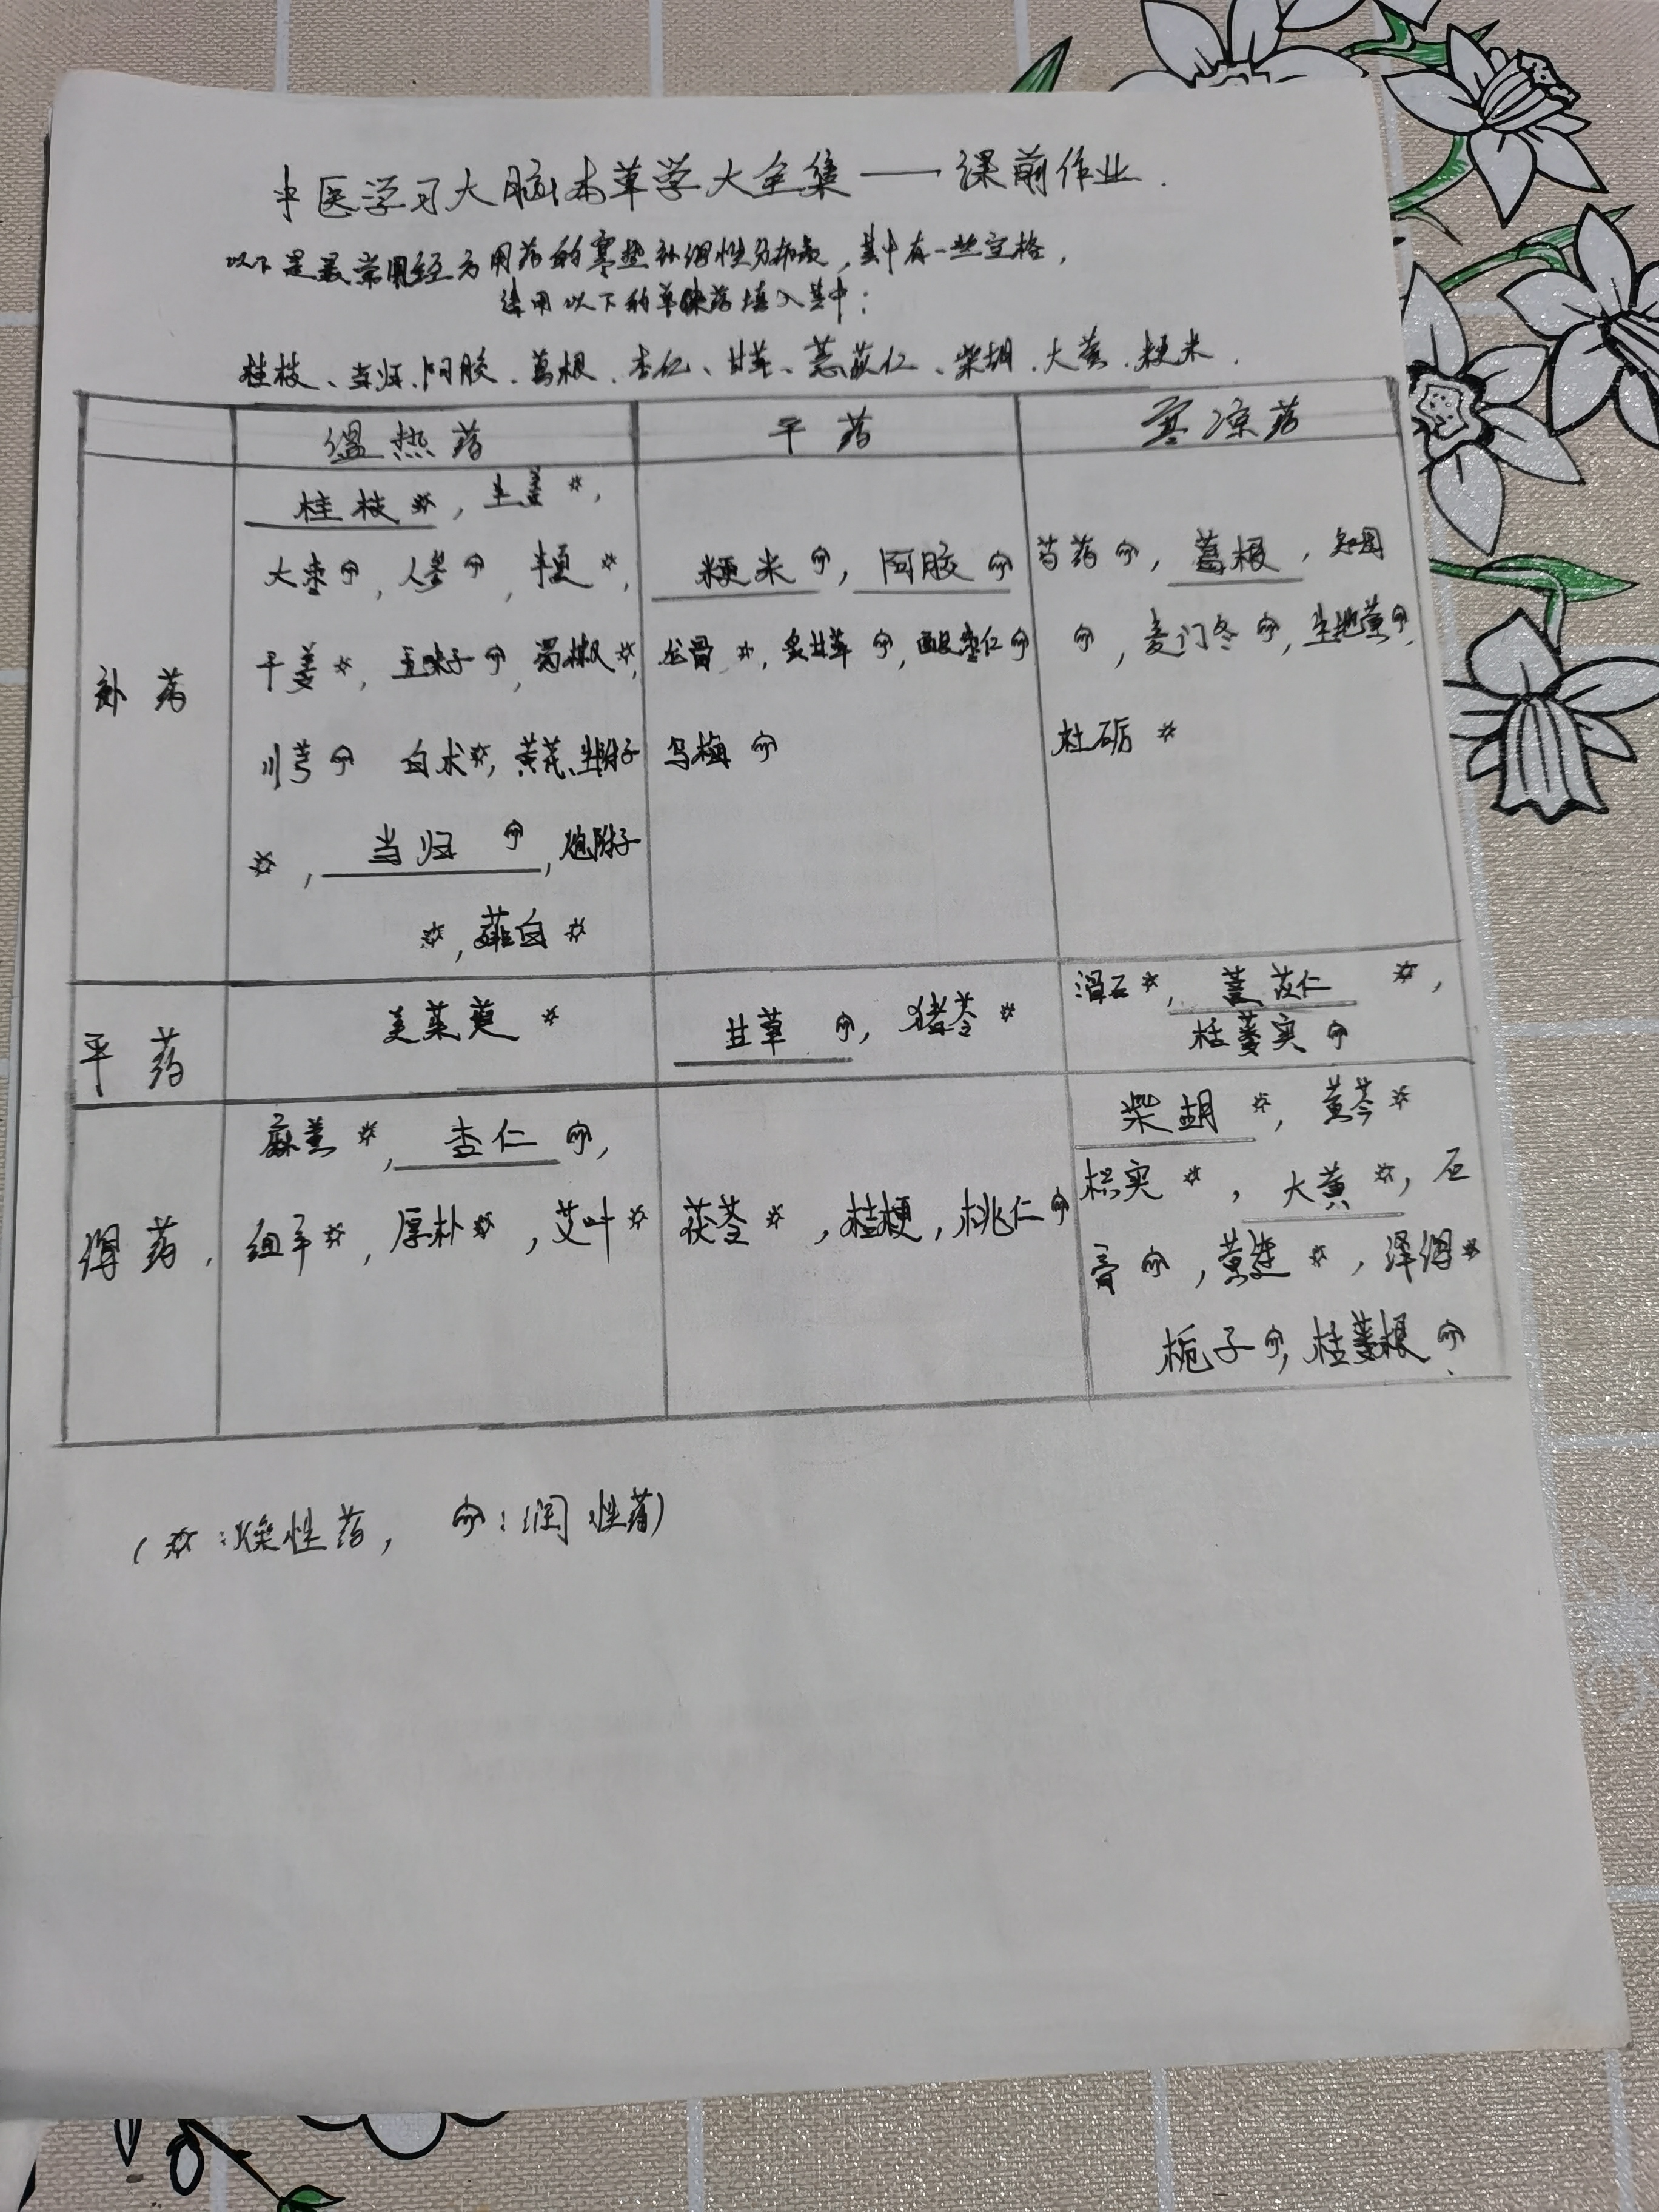 中医学习大脑本草学大全集——课前作业.
以下是最常用经方用药的寒热补泻性分布表,其中有一些空格,
请用以下的单味药填入其中:
桂枝、当归、阿胶、葛根、杏仁、甘草、薏苡仁、柴胡、大黄、粳米.
温热药 平药 寒凉药
补药
桂枝, 生姜,
大枣, 人参, 半夏,
干姜, 五味子, 蜀椒,
川芎 白术, 黄芪、生附子
, 当归, 炮附子
, 薤白
粳米, 阿胶
龙骨, 炙甘草, 酸枣仁
乌梅
芍药, 葛根, 知母
, 麦门冬, 生地黄,
牡砺
平药
吴茱萸
甘草, 猪苓
滑石, 薏苡仁,
栝蒌实
泻药.
麻黄, 杏仁,
细辛, 厚朴, 艾叶
茯苓, 桔梗, 桃仁
柴胡, 黄芩
枳实, 大黄, 石
膏, 黄连, 泽泻
栀子, 栝蒌根
(☼:燥性药, ☂:润性药)